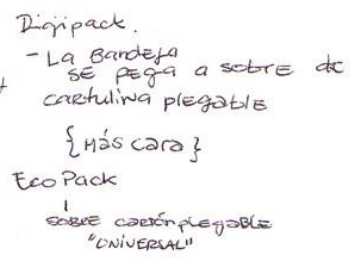 Digipack.
- La Bandeja
se pega a sobre de
cartulina plegable
{Más cara}
Eco Pack
sobre cartón plegable
"UNIVERSAL"